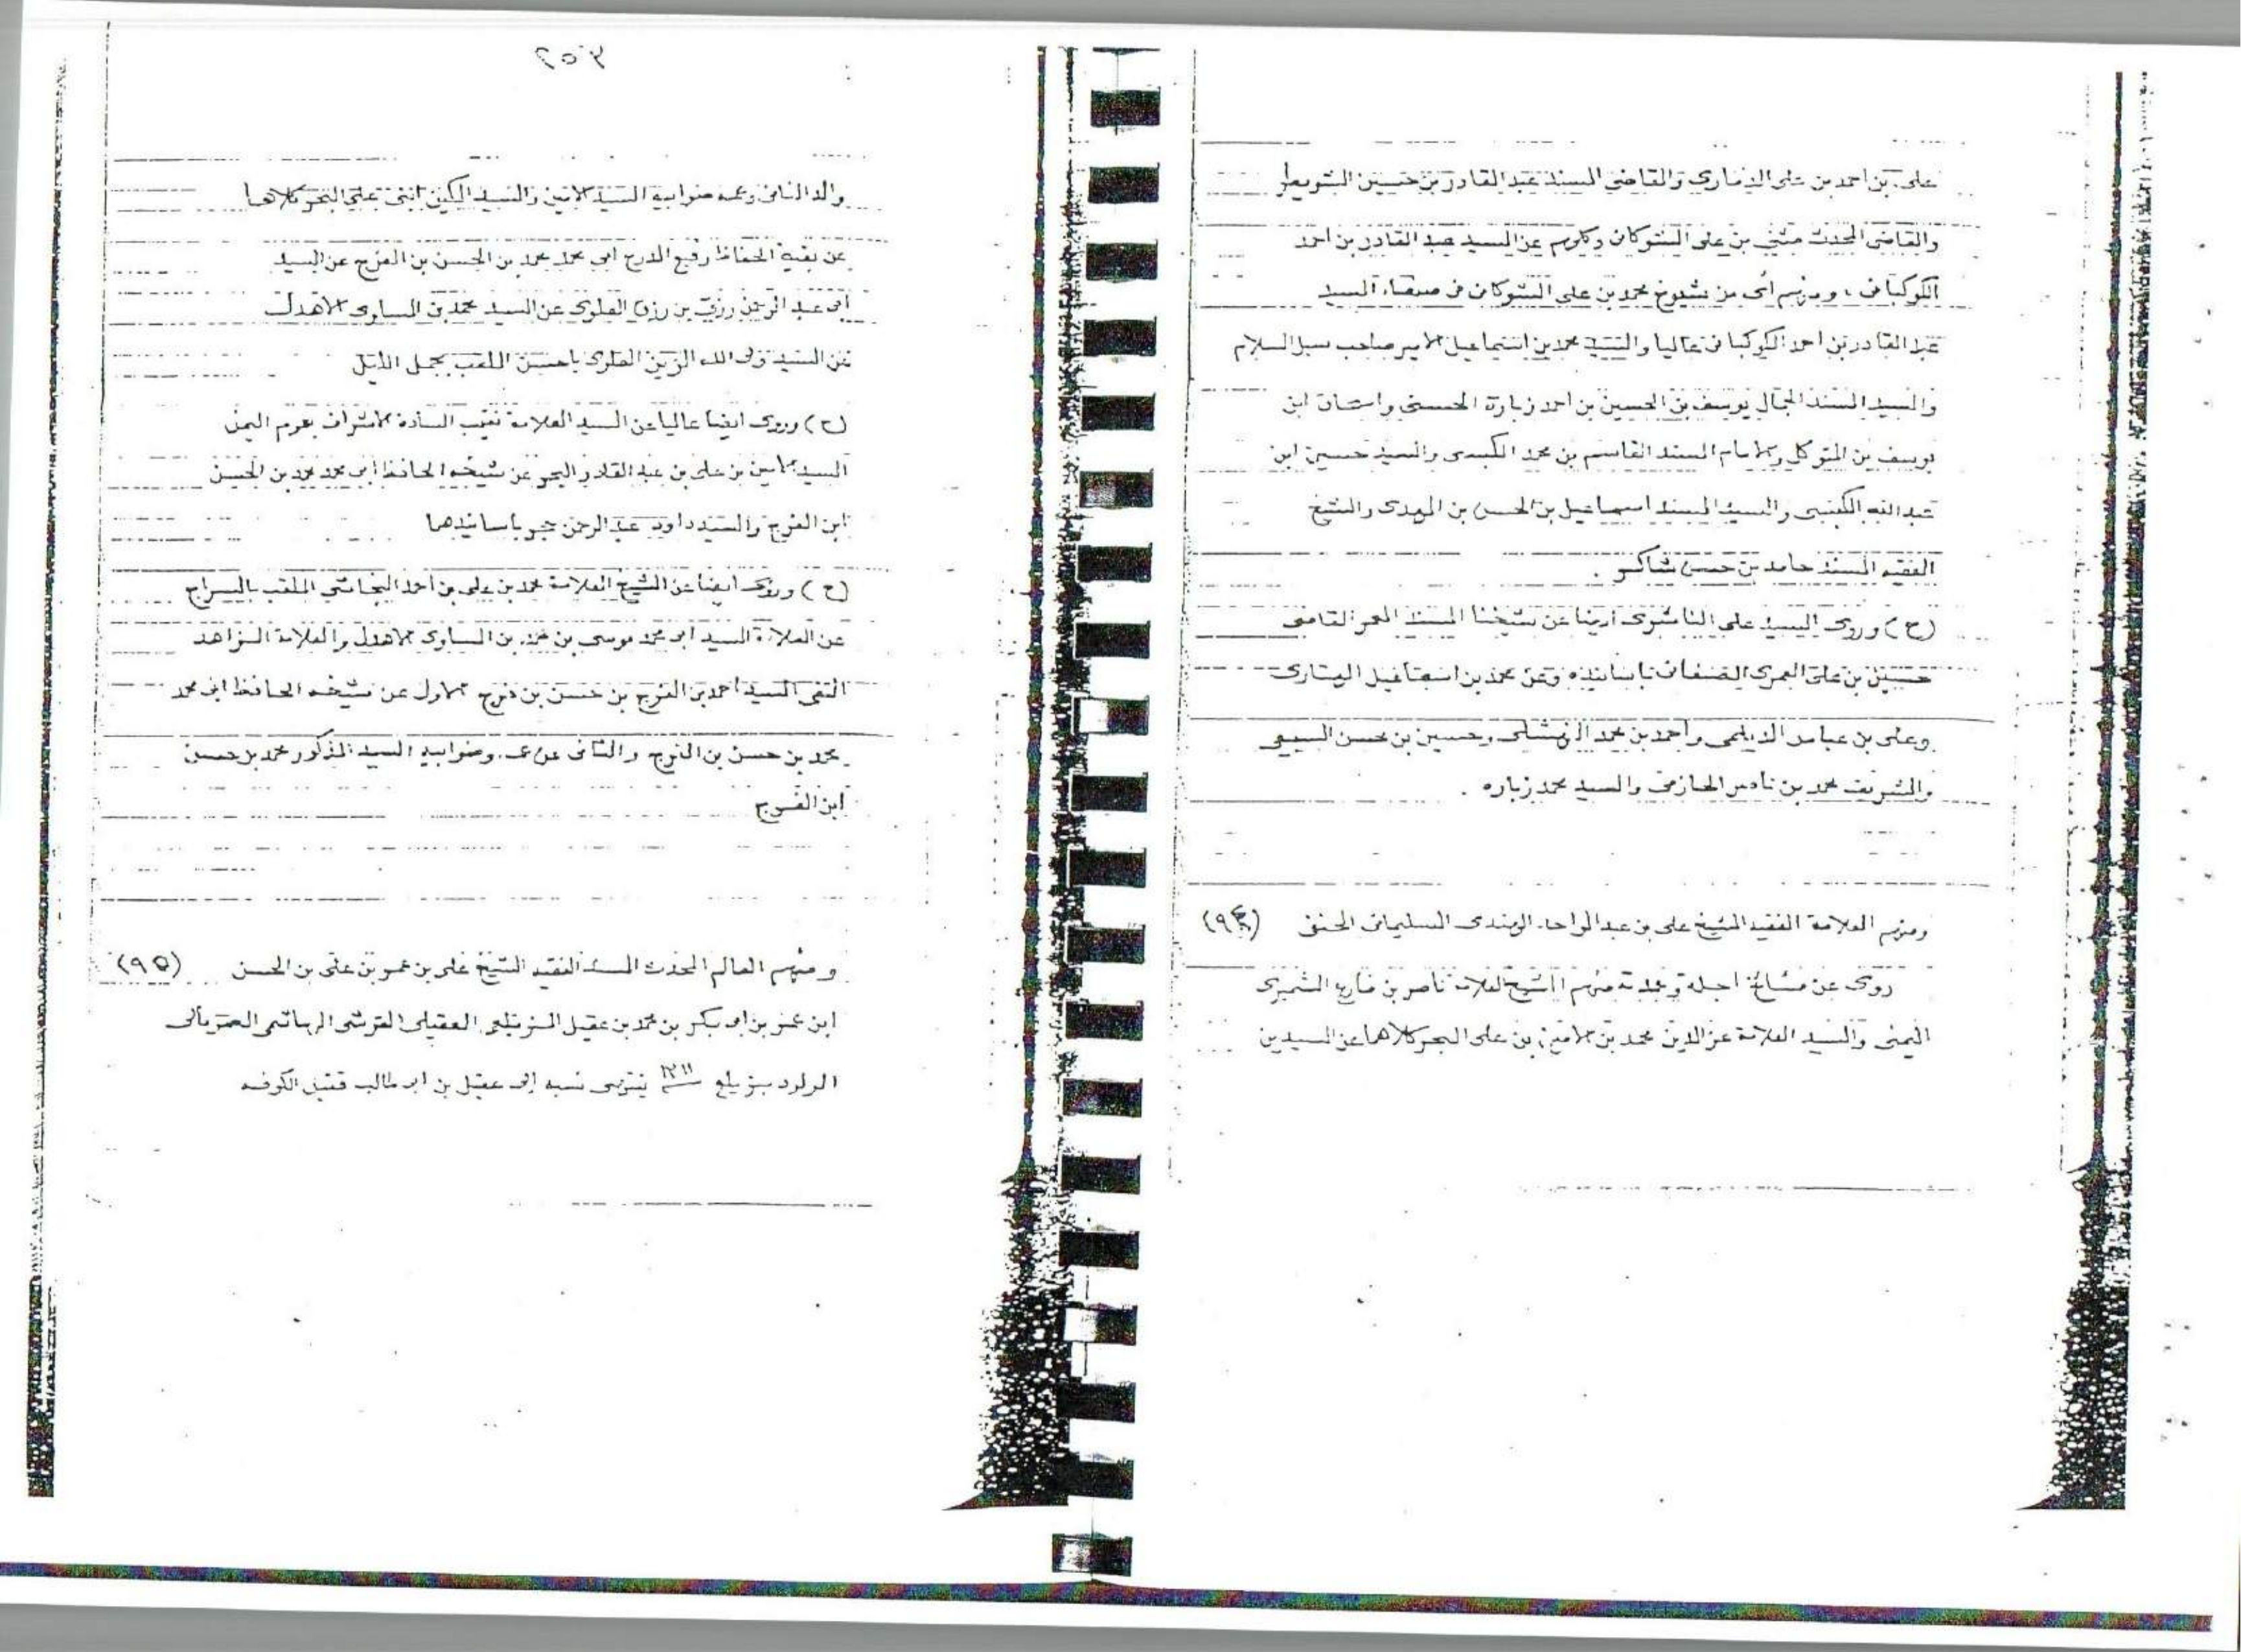 على بن احمد بن على الذمارى والقاضى المسند عبد القادر بن حسين الشويطر
والقاضى المحدث مثنى بن على الشوكانى وكلهم عن السيد عبد القادر بن احمد
الكوكبانى، ومنهم أى من شيوخ محمد بن على الشوكانى فى صنعاء السيد
عبد القادر بن احمد الكوكبانى عاليا والسيد محمد بن اسماعيل الامير صاحب سبل السلام
والسيد المسند الجمال يوسف بن الحسين بن احمد زبارة الحسنى واسحاق ابن
يوسف بن المتوكل والامام المسند القاسم بن محمد الكبسى والسيد حسين ابن
عبد الله الكبسى والسيد المسند اسماعيل بن الحسن بن المهدى والشيخ
الفقيه المسند حامد بن حسن شاكر .
(ح) وروى السيد على الناشرى أيضا عن شيخنا المسند المعمر القاضى
حسين بن على العمرى الصنعانى باسانيده وعن محمد بن اسماعيل
وعلى بن عباس الديلمى واحمد بن محمد وحسين بن محسن السبيعى
والشريف محمد بن ناصر الحازمى والسيد محمد زباره .
ومنهم العلامة الفقيه الشيخ على بن عبد الواحد الهندى السليمانى الحنفى (٩٤)
روى عن مشائخ اجله وعدة منهم الشيخ العلامة ناصر بن الشميرى
اليمنى والسيد العلامة عز الدين محمد بن الامين بن على البحر كلاهما عن السيدين
٢٥٣
والد الثانى وعمه صنو ابيه السيد الامين والسيد ابنى على البحر كلاهما
عن بقية الحفاظ رفيع الدرج ابى محمد محمد بن الحسن بن الفرج عن السيد
أبى عبد الرحمن رزق بن رزق العلوى عن السيد محمد بن المساوى الاهدل
عن السيد ولى الله الزين العلوى باحسن الملقب بجمل الليل
(ح) وروى ايضا عاليا عن السيد العلامة نقيب السادة الاشراف اليمن
السيد الامين بن على بن عبد القادر البحر عن شيخه الحافظ ابى محمد محمد بن الحسن
ابن الفرج والسيد داود عبد الرحمن حجر باسانيدهما
(ح) وروى ايضا عن الشيخ العلامة محمد بن على بن احمد النجاشى الملقب بالسراج
عن العلامة السيد ابى محمد موسى بن محمد بن المساوى الاهدل والعلامة الزاهد
التقى السيد احمد بن الفرج بن حسن بن فرج الاول عن شيخه الحافظ ابى محمد
محمد بن حسن بن الفرج والثانى عن عمه وصنو ابيه السيد المذكور محمد بن حسن
ابن الفرج
ومنهم العالم المحدث المسند الفقيه الشيخ على بن عمر بن على بن الحسن (٩٥)
ابن عمر بن ابى بكر بن محمد بن عقيل العقيلى القرشى الهاشمى
المولود ١٢١١ ينتهى نسبه إلى عقيل بن ابى طالب قتيل الكوفه